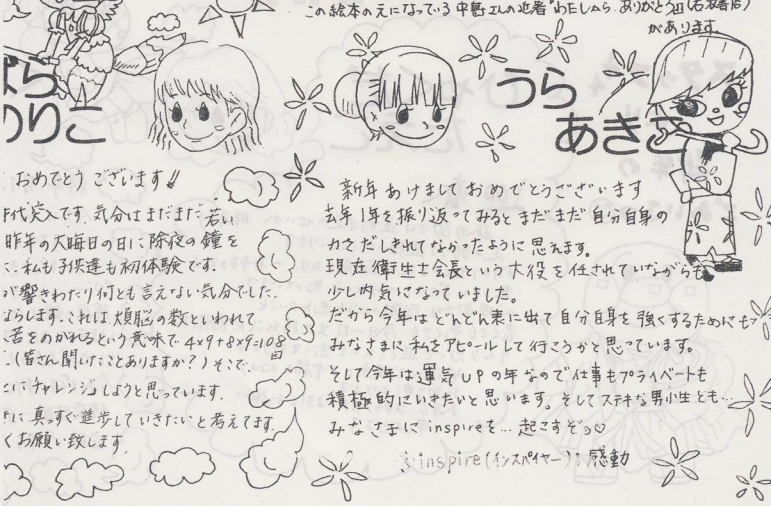 この絵本のえになっている中島さんの近著"わたしから、ありがとう"(岩崎書店)
があります。
ばら
のりこ
おめでとうございます!!
年代突入です。気分はまだまだ若い
昨年の大晦日の日に除夜の鐘を
私も子供達も初体験です。
が響きわたり何とも言えない気分でした。
ならします。これは煩脳の数といわれて
苦をのがれるという意味で 4×9+8×9=108
回
(皆さん聞いたことありますか?)そこで、
にチャレンジしようと思っています。
に真っすぐ進歩していきたいと考えてます。
くお願い致します。
うら
あきこ
新年あけましておめでとうございます
去年1年を振り返ってみるとまだまだ自分自身の
力をだしきれてなかったように思えます。
現在衛生士会長という大役を任されていながらも
少し内気になっていました。
だから今年はどんどん表に出て自分自身を強くするためにも
みなさまに私をアピールして行こうかと思っています。
そして今年は運気UPの年なので仕事もプライベートも
積極的にいきたいと思います。そしてステキな男性とも…
みなさまにinspireを…起こすぞっ♡
inspire(インスパイヤー):感動